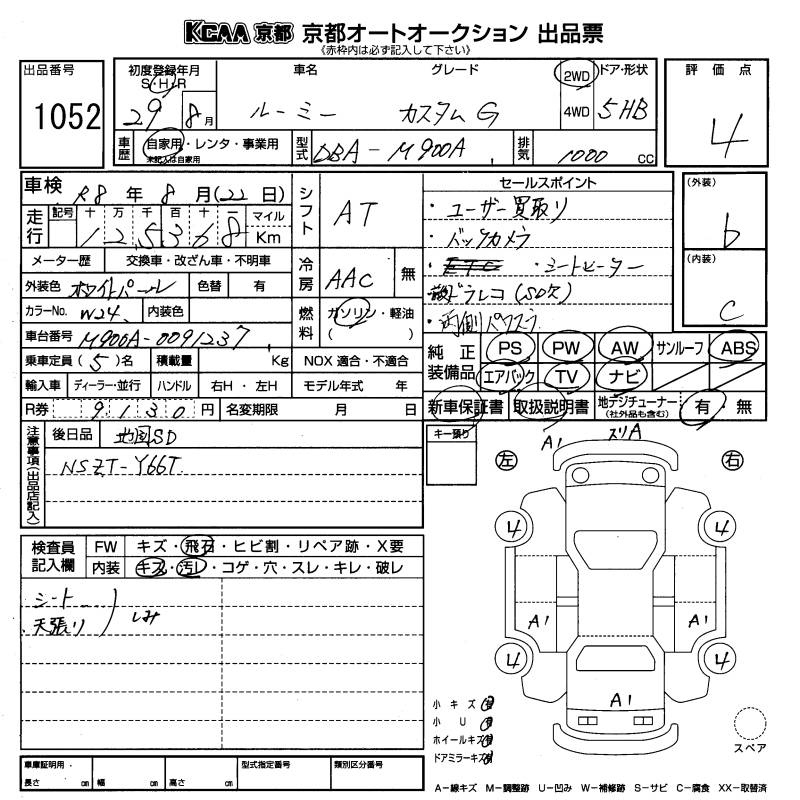 KCAA 京都 京都オートオークション 出品票
《赤枠内は必ず記入して下さい》
出品番号
1052
初度登録年月
S・H・R
29年 8月
車名
ルーミー
グレード
カスタムG
2WD
4WD
ドア・形状
5HB
評価点
4
車歴
自家用・レンタ・事業用
未記入は自家用
型式
DBA-M900A
排気
1000 cc
車検 R8年 8月(22日)
走行
記号 十 万 千 百 十 一 マイル
125368 Km
シフト
AT
メーター歴
交換車・改ざん車・不明車
冷房
AAC
無
外装色
ホワイトパール
色替
有
カラーNo.
W24
内装色
燃料
ガソリン・軽油
( )
車台番号
M900A-0091237
乗車定員(5)名
積載量
Kg
NOX 適合・不適合
輸入車
ディーラー・並行
ハンドル
右H・左H
モデル年式 年
R券
9130円
名変期限
月 日
セールスポイント
・ユーザー買取り
・バックカメラ
・ETC ・シートヒーター
ドラレコ(SD欠)
・両側パワスラ
(外装)
b
(内装)
C
純正装備品
PS
PW
AW
サンルーフ
ABS
エアバック
TV
ナビ
新車保証書
取扱説明書
地デジチューナー
(社外品も含む)
有・無
注意事項(出品店記入)
後日品
地図SD
NSZT-Y66T
検査員記入欄
FW
キズ・飛石・ヒビ割・リペア跡・X要
内装
キズ・汚レ・コゲ・穴・スレ・キレ・破レ
シート
天張り
しみ
キー預り
A1
スリA
左
右
4
4
A1
A1
4
4
A1
小キズ
小U
ホイールキズ
ドアミラーキズ
スペア
車庫証明用・
長さ cm
幅 cm
高さ cm
型式指定番号
類別区分番号
A−線キズ M−調整跡 U−凹み W−補修跡 S−サビ C−腐食 XX−取替済